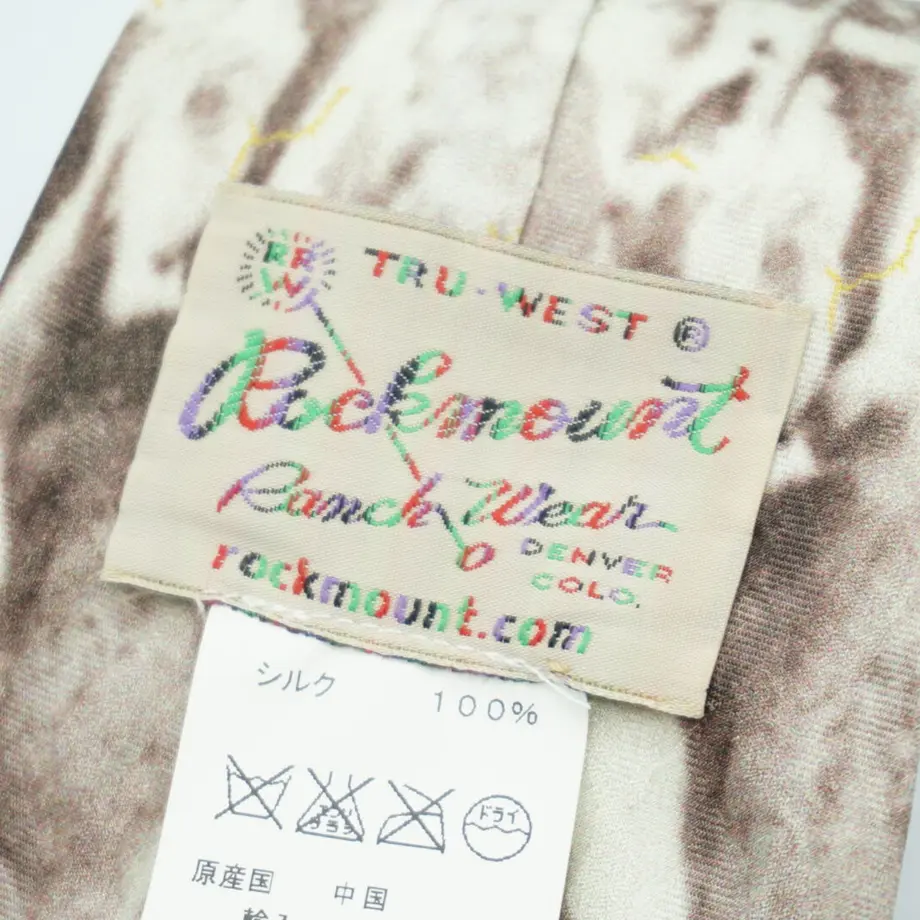 RR
W
TRU-WEST ®
Rockmount
Ranch Wear
DENVER
COLO.
rockmount.com
シルク 100%
ドライ
原産国 中国
輸入